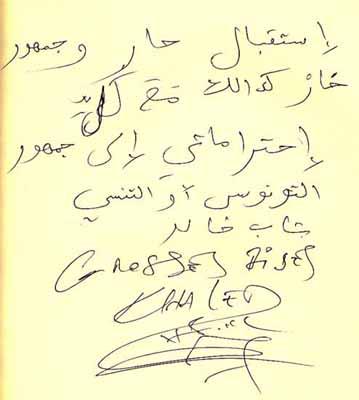 إستقبال حار وجمهور
حار كذالك مع كل يد
إحتراماتي إلى جمهور
التونوسي أو التنسي
شاب خالد
GROSSES BISES
KHALED